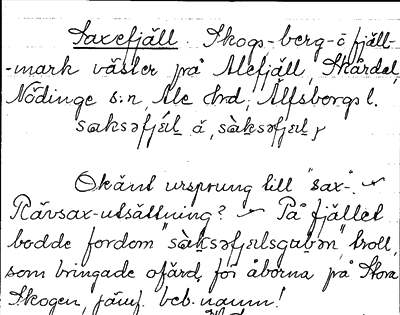 Saxefjäll. Skogs-berg- o fjäll-
-mark väster på Alefjäll, Skårdal,
Nödinge s:n, Ale hrd, Älfsborgs l.
saksəfjɛ́l å, sàksəfjɛl,
Okänt ursprung till "sax-".
Rävsax-utsättning? På fjället
bodde fordom "sàksəfjɛlsgubən", troll,
som bringade ofärd för åborna på Stora
Skogen, jämf. beb.namn!